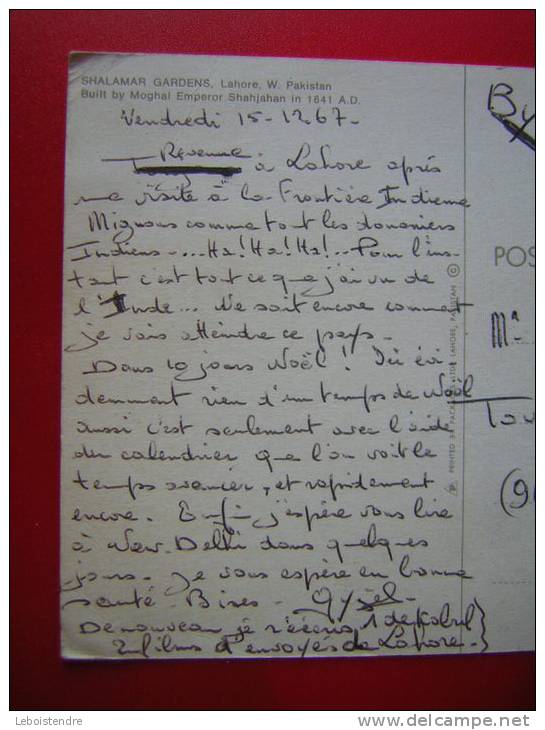 SHALAMAR GARDENS, Lahore, W. Pakistan
Built by Moghal Emperor Shahjahan in 1641 A.D.
Vendredi 15-12.67-
Revenue à Lahore après
une visite à la Frontière Indienne
Mignons comme tout les douaniers
Indiens - ... Ha! Ha! Ha! .. Pour l'ins-
tant c'est tout ce que j'ai vu de
l'Inde... Ne sait encore comment
je vais atteindre ce pays -
Dans 10 jours Noël ! Ici évi
demment rien d'un temps de Noël
aussi c'est seulement avec l'aide
du calendrier que l'on voit le
temps avancer, et rapidement
encore. Enfin j'espère vous lire
à New-Delhi dans quelques
jours - Je vous espère en bonne
santé - Bises -
De nouveau je 1 de Kabul
2 films d'envoyés de Lahore -
POS
Ma
(9
PRINTED BY PACKAGES LTD LAHORE, PAKISTAN ©
Leboistendre
http://www.delcampe.net